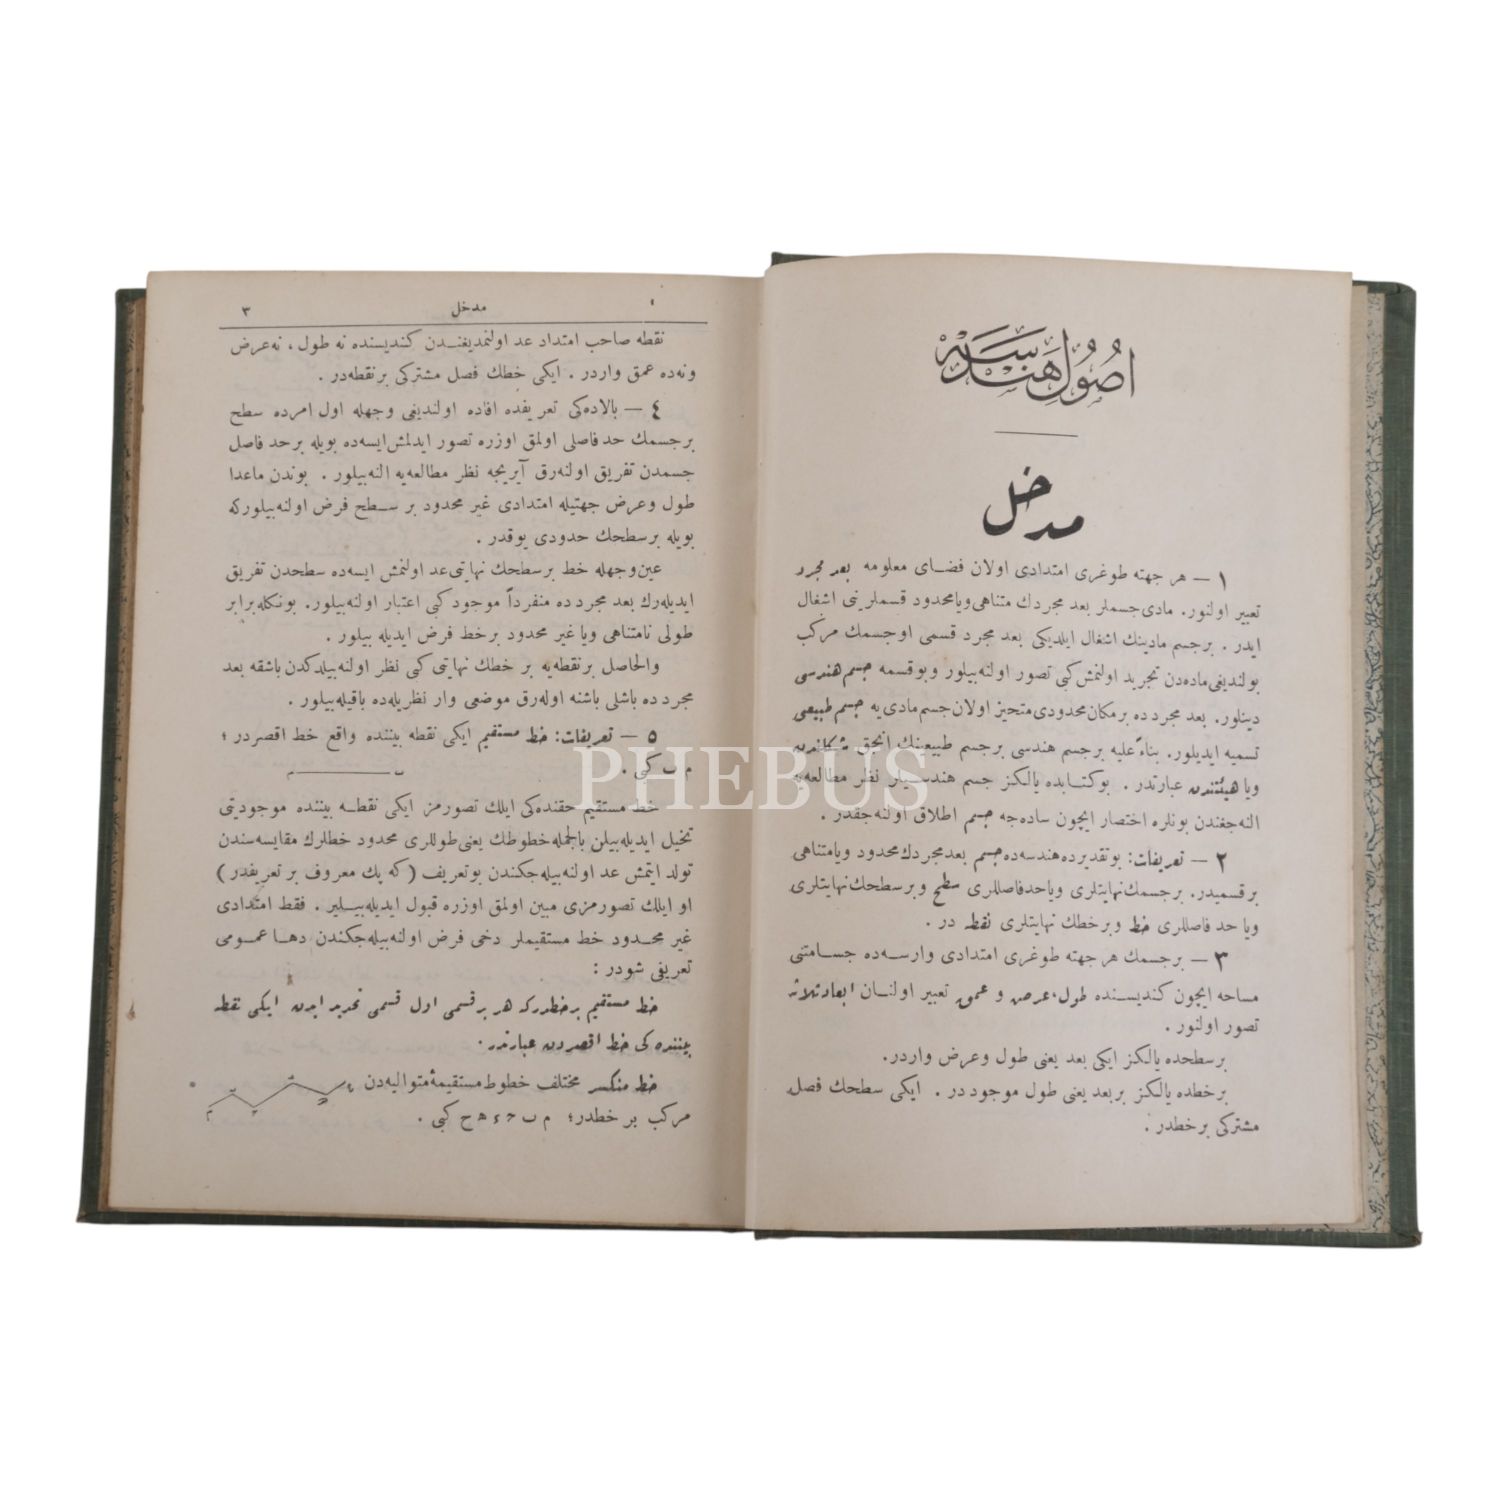 اصول هندسه
مدخل
١ — هر جهته طوغرى امتدادى اولان فضاى معلومه بعد مجرد
تعبير اولنور. مادى جسملر بعد مجردك متناهى ويا محدود قسملرينى اشغال
ايدر. برجسم مادينك اشغال ايلديكى بعد مجرد قسمى اوجسمك مركب
بولنديغى ماده‌دن تجريد اولنمش كبى تصور اولنه‌بيلور وبوقسمه جسم هندسى
دينلور. بعد مجردده برمكان محدودى متحيز اولان جسم مادى‌يه جسم طبيعى
تسميه ايديلور. بناءً عليه برجسم هندسى برجسم طبيعينك انجق شكلندن
ويا هيئتندن عبارتدر. بوكتابده يالكز جسم هندسيلر نظر مطالعه‌يه
النه‌جغندن بونلره اختصار ايچون ساده‌جه جسم اطلاق اولنه‌جقدر.
٢ — تعريفات: بوتقديرده هندسه‌ده جسم بعد مجردك محدود ويا متناهى
برقسميدر. برجسمك نهايتلرى ويا حد فاصللرى سطح وبرسطحك نهايتلرى
ويا حد فاصللرى خط وبرخطك نهايتلرى نقطه در.
٣ — برجسمك هر جهته طوغرى امتدادى وارسه‌ده جسامتنى
مساحه ايچون كنديسنده طول، عرض و عمق تعبير اولنان ابعاد ثلاثه
تصور اولنور.
برسطحده يالكز ايكى بعد يعنى طول وعرض واردر.
برخطده يالكز بربعد يعنى طول موجوددر. ايكى سطحك فصل
مشتركى برخطدر.
مدخل ٣
نقطه صاحب امتداد عد اولنمديغندن كنديسنده نه طول، نه عرض
ونه‌ده عمق واردر. ايكى خطك فصل مشتركى برنقطه‌در.
٤ — بالاده‌كى تعريفده افاده اولنديغى وجهله اول امرده سطح
برجسمك حد فاصلى اولمق اوزره تصور ايدلمش ايسه‌ده بويله برحد فاصل
جسمدن تفريق اولنه‌رق آيريجه نظر مطالعه‌يه النه‌بيلور. بوندن ماعدا
طول وعرض جهتيله امتدادى غير محدود بر سطح فرض اولنه‌بيلوركه
بويله برسطحك حدودى يوقدر.
عين وجهله خط برسطحك نهايتى عد اولنمش ايسه‌ده سطحدن تفريق
ايديله‌رك بعد مجردده منفرداً موجود كبى اعتبار اولنه‌بيلور. بونكله برابر
طولى نامتناهى ويا غير محدود برخط فرض ايديله بيلور.
والحاصل برنقطه‌يه بر خطك نهايتى كبى نظر اولنه‌بيلدكدن باشقه بعد
مجردده باشلى باشنه اوله‌رق موضعى وار نظريله‌ده باقيله‌بيلور.
٥ — تعريفات: خط مستقيم ايكى نقطه بيننده واقع خط اقصردر؛
م ب كبى.
م ب
خط مستقيم حقنده‌كى ايلك تصورمز ايكى نقطه بيننده موجوديتى
تخيل ايديله‌بيلن بالجمله خطوطك يعنى طوللرى محدود خطلرك مقايسه‌سندن
تولد ايتمش عد اولنه‌بيله‌جكندن بوتعريف (كه پك معروف بر تعريفدر)
او ايلك تصورمزى مبين اولمق اوزره قبول ايديله‌بيلير. فقط امتدادى
غير محدود خط مستقيملر دخى فرض اولنه‌بيله‌جكندن دها عمومى
تعريفى شودر:
خط مستقيم برخطدركه هر برقسمى اول قسمى تحديد ايدن ايكى نقطه
بيننده‌كى خط اقصردن عبارتدر.
خط منكسر مختلف خطوط مستقيمۀ متواليه‌دن
مركب بر خطدر؛ م ب ح ء ه ح كبى.
PHEBUS